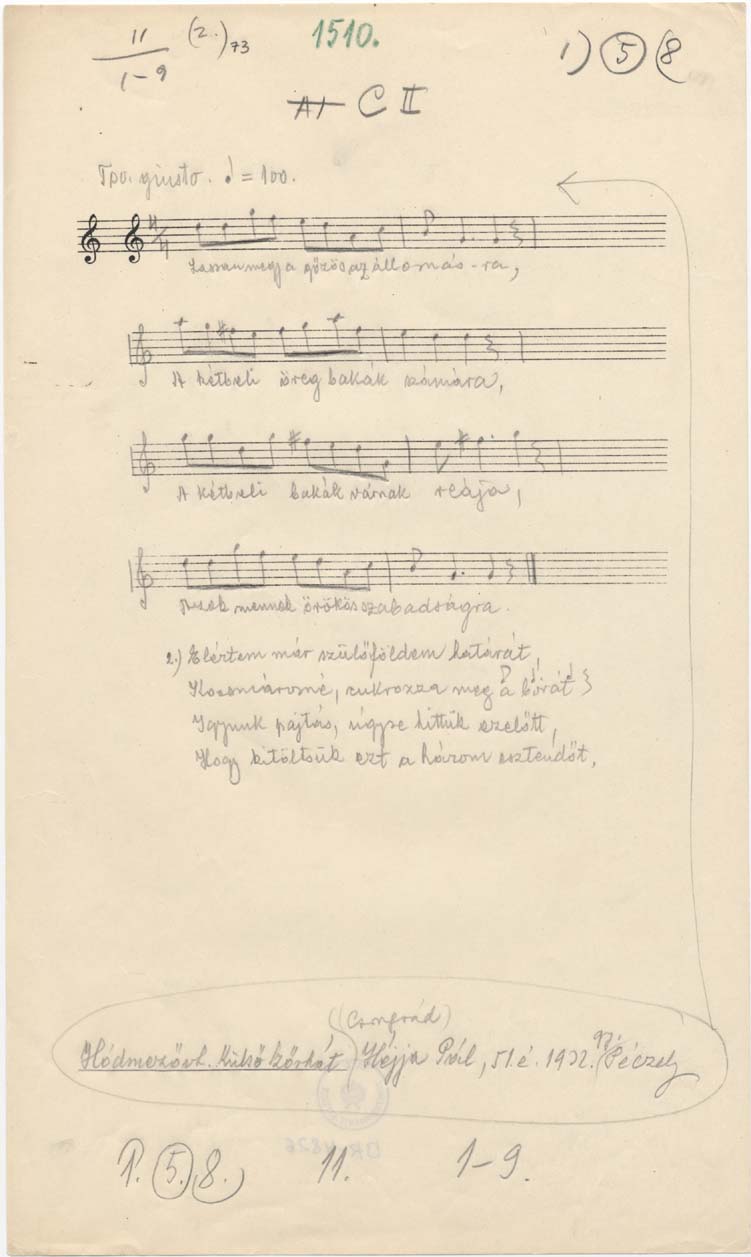 11 (2.)73 1510. 1) 5 (8
1-9
A1 C II
Tpo. giusto. ♩ = 100.
4/4
Lassan megy a gőzös az állomás-ra,
A kétbeli öreg bakák számára,
A kétbeli bakák várnak reája,
Azok mennek örökös szabadságra.
2.) Elértem már szülőföldem határát,
Kocsmárosné, cukrozza meg a borát
Igyunk pajtás, úgyse ittuk ezelőtt,
Hogy kitöltsük ezt a három esztendőt,
(Csongrád)
Hódmezővh. Külső Héjja Pál, 51.é. 1932. Péczely
1. 5. 8. 11. 1-9.